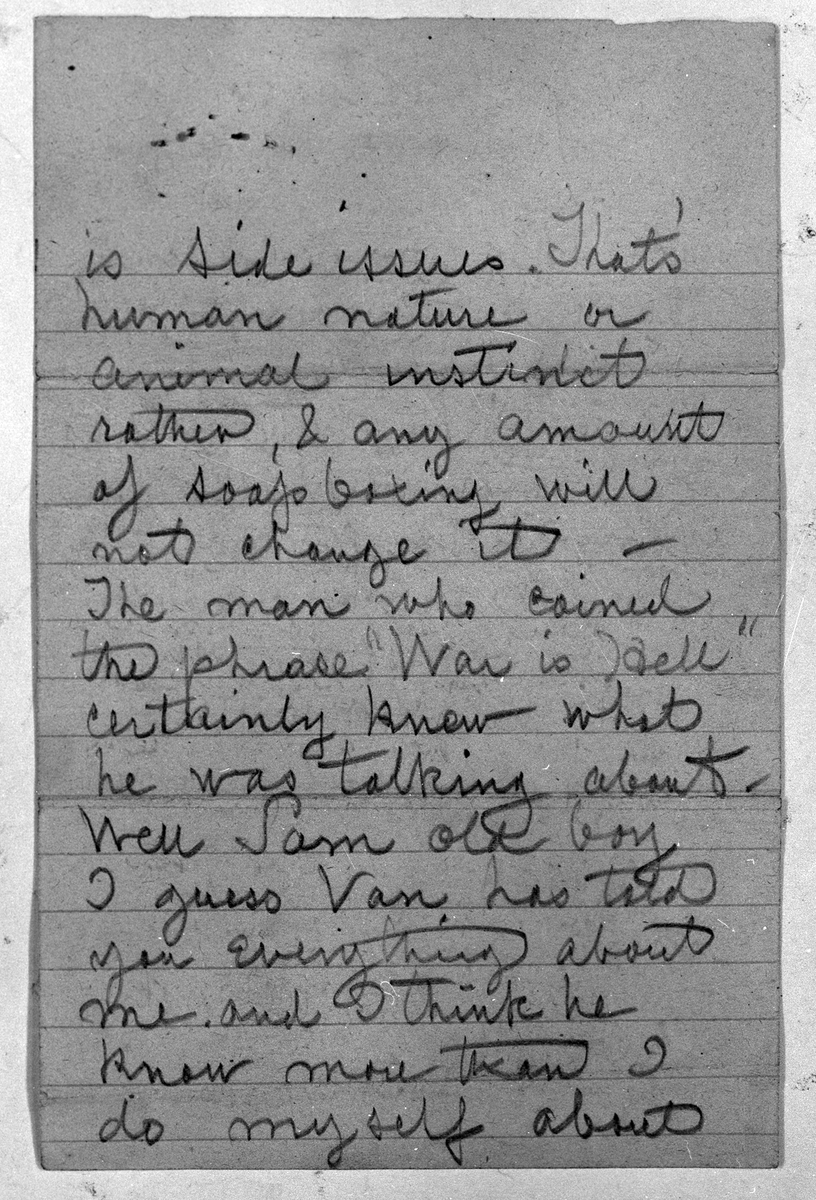 is side issues. That's
human nature or
animal instinct
rather, & any amount
of soap boxing will
not change it —
The man who coined
the phrase "War is Hell"
certainly knew what
he was talking about –
Well Sam old boy
I guess Van has told
you everything about
me. and I think he
know more than I
do myself about